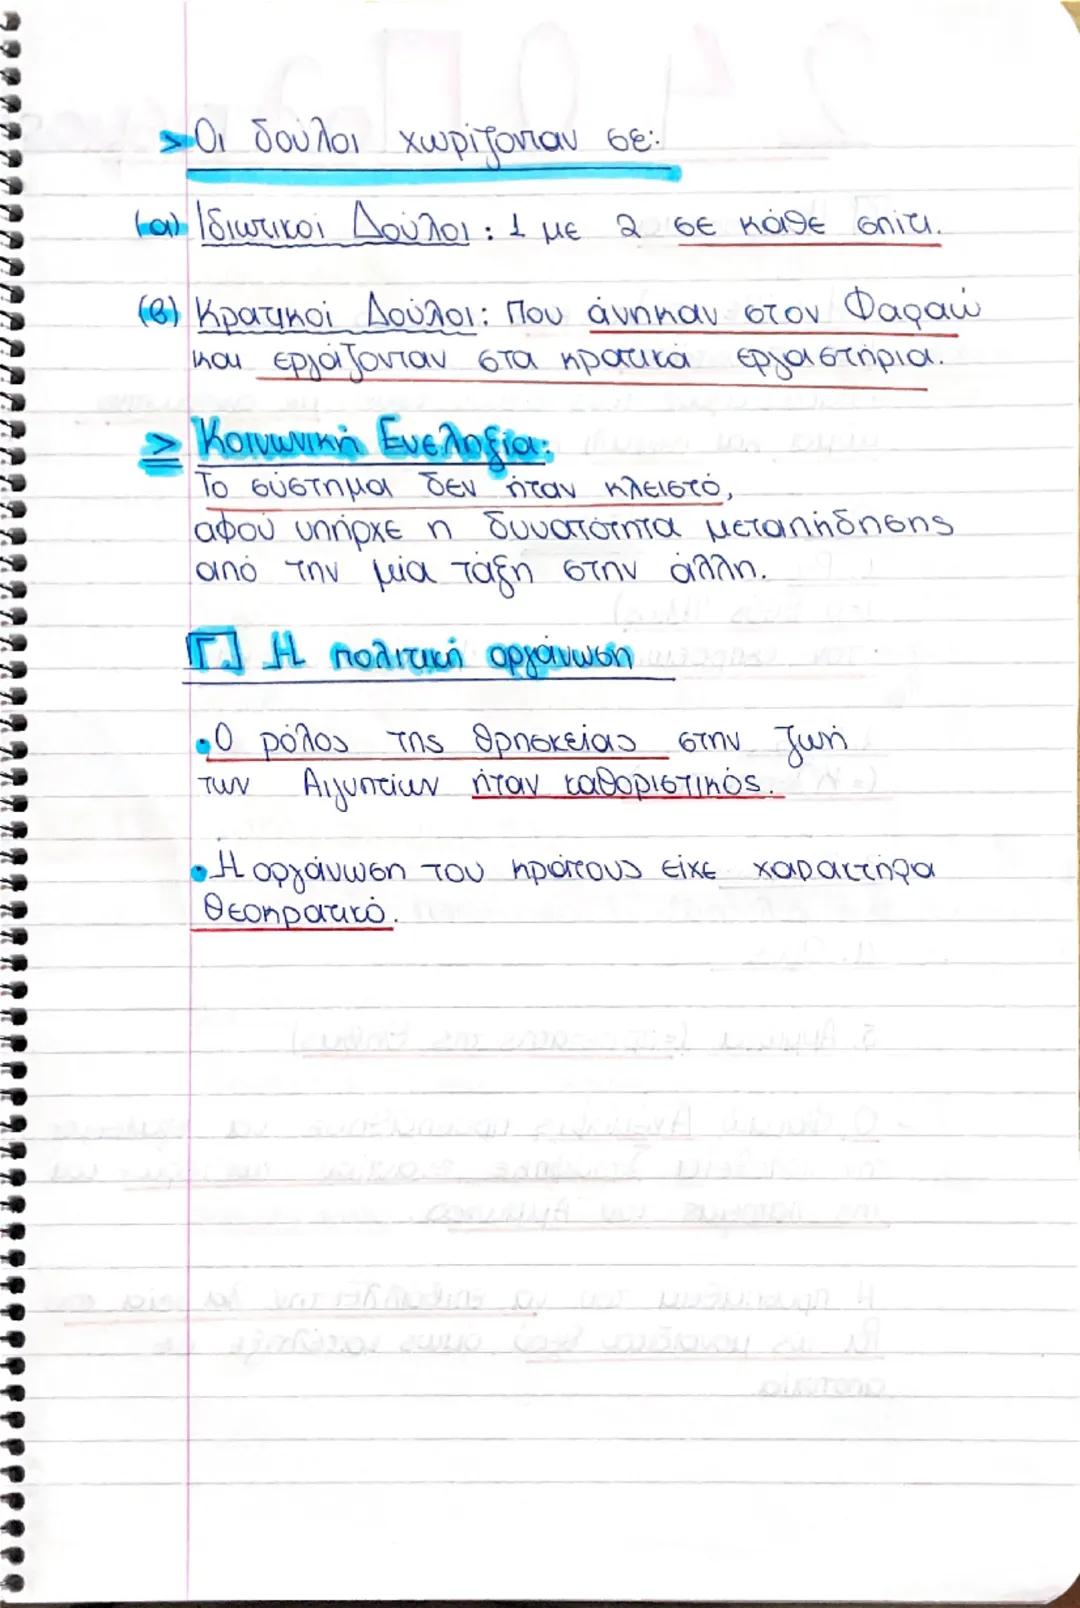 > Οι δούλοι χωρίζονταν σε:
(α) Ιδιωτικοί Δούλοι: 1 με 2 σε κάθε σπίτι.
(β) Κρατικοί Δούλοι: Που άνηκαν στον Φαραώ
και εργάζονταν στα κρατικά εργαστήρια.
> Κοινωνική Ευελιξία:
Το σύστημα δεν ήταν κλειστό,
αφού υπήρχε η δυνατότητα μεταπήδησης
από την μία τάξη στην άλλη.
Γ. Η πολιτική οργάνωση
• Ο ρόλος της θρησκείας στην ζωή
των Αιγυπτίων ήταν καθοριστικός.
• Η οργάνωση του κράτους είχε χαρακτήρα
θεοκρατικό.